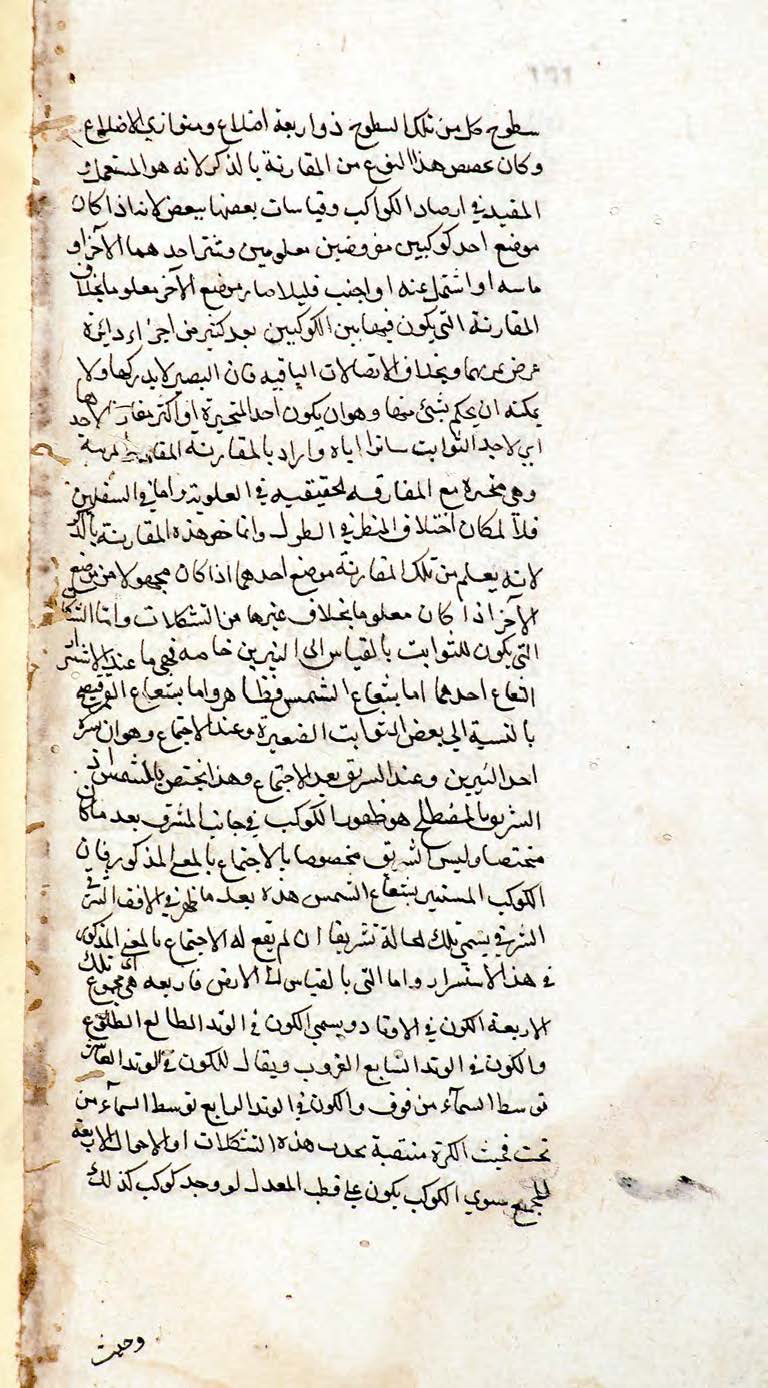 سطوح كل من تلك السطوح ذو اربعة اضلاع ومتوازي الاضلاع
وكان تخصيص هذا النوع من المقارنة بالذكر لانه هو المستعمل و
المفيد في ارصاد الكواكب وقياسات بعضها ببعض لانه اذا كان
موضع احد كوكبين مفروضين معلومين وستر احدهما الآخر او
ماسه او اشتمل عنه او اجنب قليلا صار موضع الآخر معلوما بخلاف
المقارنة التي يكون فيها بين الكوكبين بعد كثير من اجزاء دائرة
عرض عنهما وبخلاف الاتصالات الباقيه فان البصر لا يدركها ولا
يمكنه ان يحكم بشئ منها وهو ان يكون احد المتحيرة او اكثر مقارنا لاحدها
اي لاحد الثوابت ساترا اياه واراد بالمقارنة
وهي مع المفارقه الحقيقيه في العلوية واما في السفليين
فلا لمكان اختلاف المنظر في الطول وانما خص هذه المقارنة بالذكر
لانه يعلم من تلك المقارنة موضع احدهما اذا كان مجهولا من موضع
الآخر اذا كان معلوما بخلاف غيرها من التشكلات واما التشكلات
التي يكون للثوابت بالقياس الى النيرين خاصه فهي ما عند الاستتار
شعاع احدهما اما بشعاع الشمس فظاهر واما بشعاع القمر فيصح
بالنسبة الى بعض الثوابت الصغيرة وعند الاجتماع وهو ان يستره
احد النيرين وعند التشريق بعد الاجتماع وهذا يختص بالشمس اذ
التشريق بالمصطلح هو ظهور الكوكب في جانب المشرق بعد ما كان
مختفيا وليس التشريق مخصوصا بالاجتماع بالمعنى المذكور فان
الكوكب المستتر بشعاع الشمس هذه بعد ما ظهر في الافق
الشرقي يسمي تلك الحالة تشريقا ان لم يقع له الاجتماع بالمعنى المذكور
في هذا الاستسرار واما التي بالقياس الى الارض فاربعه هي مجموع اي تلك
الاربعة الكون في الاوتاد ويسمي الكون في الوتد الطالع الطلوع
والكون في الوتد السابع الغروب ويقال للكون في الوتد العاشر
توسط السماء من فوق والكون في الوتد الرابع توسط السماء من
تحت فحيث الكرة منتصبة يحدث هذه التشكلات او الاحوال الاربعه
للجميع سوي الكوكب يكون على قطب المعدل لو وجد كوكب كذلك
وحيث